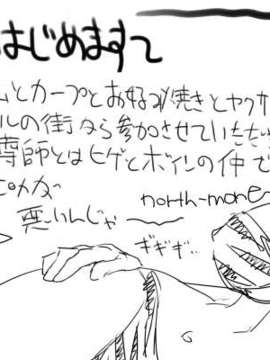 はじめますて
とカープとお好み焼きとヤクザ
ルの街から参加させていただ
導師とはヒゲとボインの仲で
ピカが
悪いんじゃー
north-mone
ギギギ…